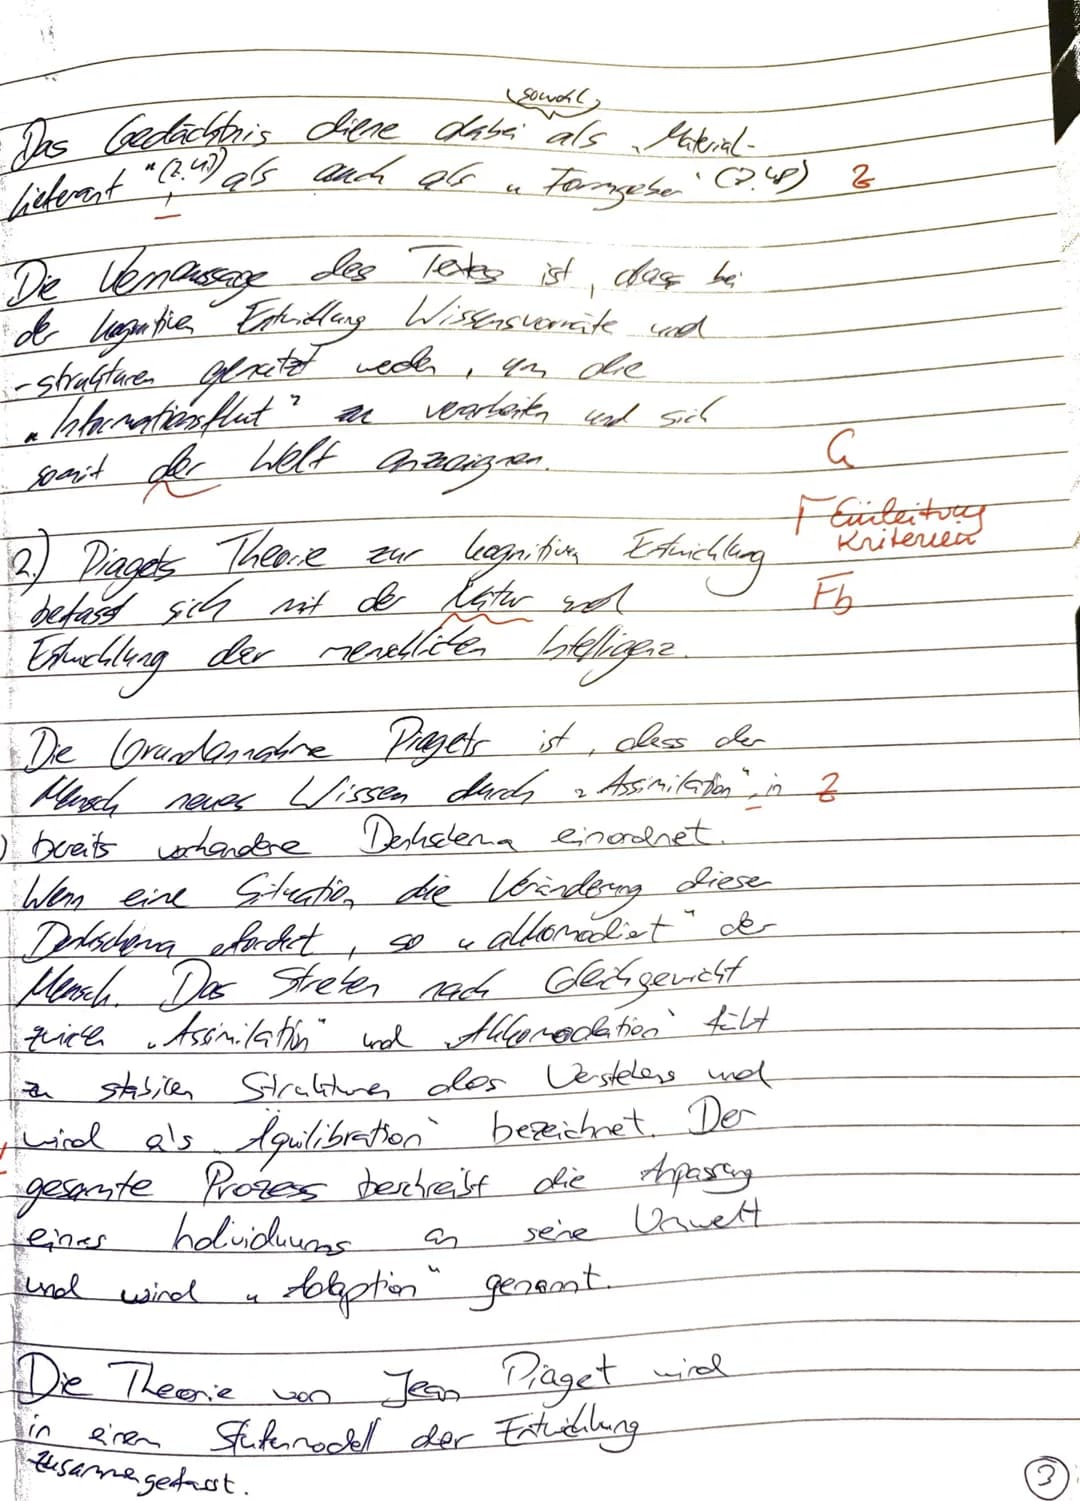 sowohl
Das Gedächtnis diene dabei als „Material-
lieferant" (Z.47) als auch als „Formgeber" (Z.48) Z
Die Kernaussage des Textes ist, dass bei
der kognitiven Entwicklung Wissensvorräte und
-strukturen genutzt werden, um die
„Informationsflut" zu verarbeiten und sich
somit der Welt anzueignen. G
Γ Einleitung
Kriterien
2.) Piagets Theorie zur kognitiven Entwicklung
befasst sich mit der Natur und Fb
Entwicklung der menschlichen Intelligenz.
Die Grundannahme Piagets ist, dass der
Mensch neues Wissen durch „Assimilation", in Z
bereits vorhandene Denkschema einordnet.
Wenn eine Situation die Veränderung dieser
Denkschema erfordert, so „akkomodiert" der
Mensch. Das Streben nach Gleichgewicht
zwischen „Assimilation" und „Akkomodation" führt
zu stabilen Strukturen des Verstehens und
wird als „Äquilibration" bezeichnet. Der
gesamte Prozess beschreibt die Anpassung
eines Individuums an seine Umwelt
und wird „Adaption" genannt.
Die Theorie von Jean Piaget wird
in einem Stufenmodell der Entwicklung
zusammengefasst.
3